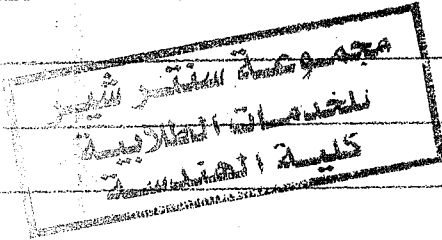 مجموعة سنتر شيبر
للخدمات الطلابية
كلية الهندسة